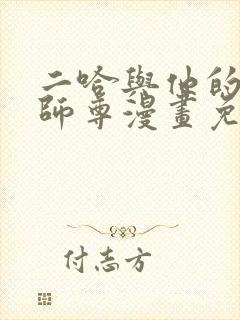 二哈與他的
師尊漫畫免
付志方